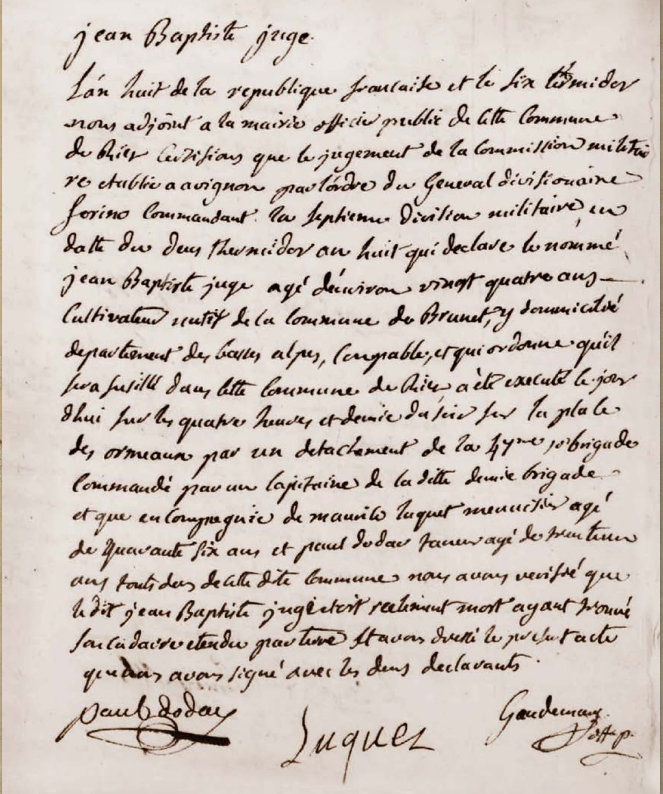 jean Baptiste juge.
L'an huit de la republique francaise et le six termidor
nous adjoint a la mairie officier public de cette Commune
de Riez Certifions que le jugement de la Commission militai
re etablie a avignon par l'ordre du General divisionaire
ferino Commandant la septieme division militaire, en
datte du deus thermidor an huit qui declare le nommé
jean Baptiste juge agé d'environ vingt quatre ans
Cultivateur natif de la Commune de Brunet, y domicilié
departement des basses alpes, Coupable, et qui ordonne qu'il
sera fusillé dans cette Commune de Riez a été executé le jour
d'hui sur les quatre heures et demie du soir sur la place
des ormeaux par un detachement de la 47me 1/2 brigade
Commandé par un Capitaine de la ditte demie brigade
et que en Compagnie de maurice luquet menuisier agé
de Quarante six ans et paul dodac taneur agé de trente un
ans touts deus de cette dite Commune nous avons verifié que
le dit jean Baptiste juge etoit réelement mort ayant trouvé
son cadavre etendu par terre et avons dressé le present acte
que nous avons signé avec les deus declarants.
paul dodac
Luquet
Gaudemar
off. p.